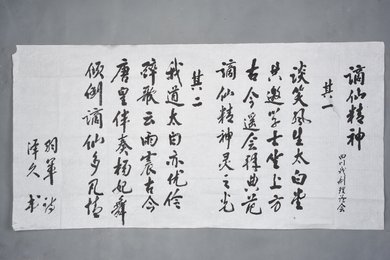 谪仙精神
四川戏剧理论会
其一
谈笑风生太白堂
共邀学士坐上方
古今选会择典范
谪仙精神灵之光
其二
我道太白亦优伶
醉歌云雨震古今
唐皇伴奏杨妃舞
倾倒谪仙多风情
羽军诗
泽久书